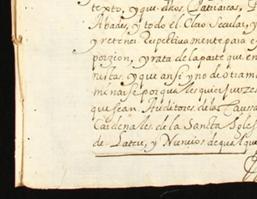 texto, y que dhos Patriarcas, P
Abades, y todo el Clero Secular, y
y retener Respectivamente para e
porzion, y rata de la parte que en
nistas, y que ansi y no de otra m
minarse por qualesquier Juezes
que sean Auditores de la Caussa
Cardenales de la Sancta Igles
de Latere, y Nuncios de qualque